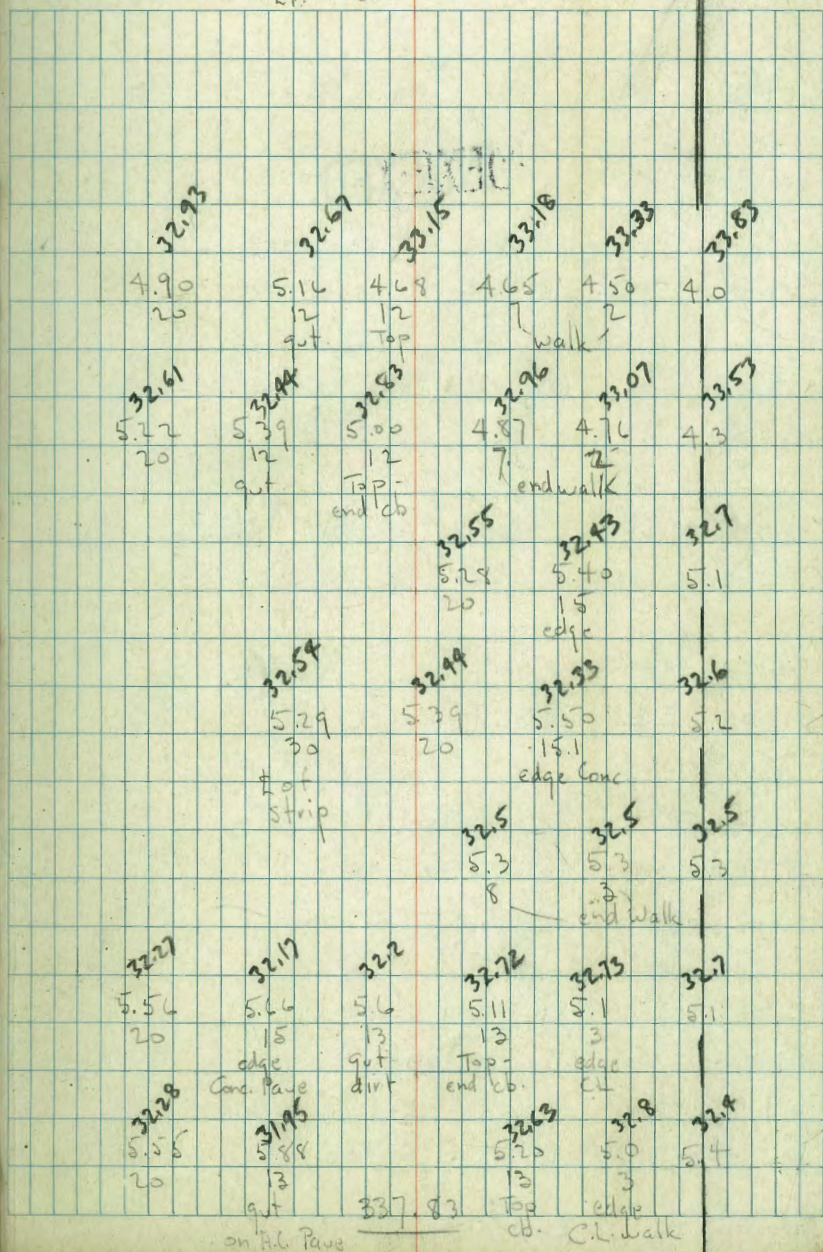 32.93 32.67 33.15 33.18 33.33 33.83
4.90 5.16 4.68 4.65 4.50 4.0
20 12 12 7 2
gut Top walk
32.61 32.44 32.83 32.96 33.07 33.53
5.22 5.39 5.00 4.87 4.76 4.3
20 12 12 7 2
gut Top - endwalk
end cb
32.55 32.43 32.7
5.28 5.40 5.1
20 15
edge
32.54 32.44 32.33 32.6
5.29 5.39 5.50 5.2
30 20 15.1
edge Conc
℄ of
strip
32.5 32.5 32.5
5.3 5.3 5.3
8 3
end walk
32.27 32.17 32.2 32.72 32.73 32.7
5.56 5.66 5.6 5.11 5.1 5.1
20 15 13 13 3
edge gut Top - edge
Conc. Pave dirt end cb. CL
32.28 31.95 32.63 32.8 32.4
5.55 5.88 5.20 5.0 5.4
20 13 13 3
gut 337.83 Top edge
on A.C. Pave cb. C.L. walk